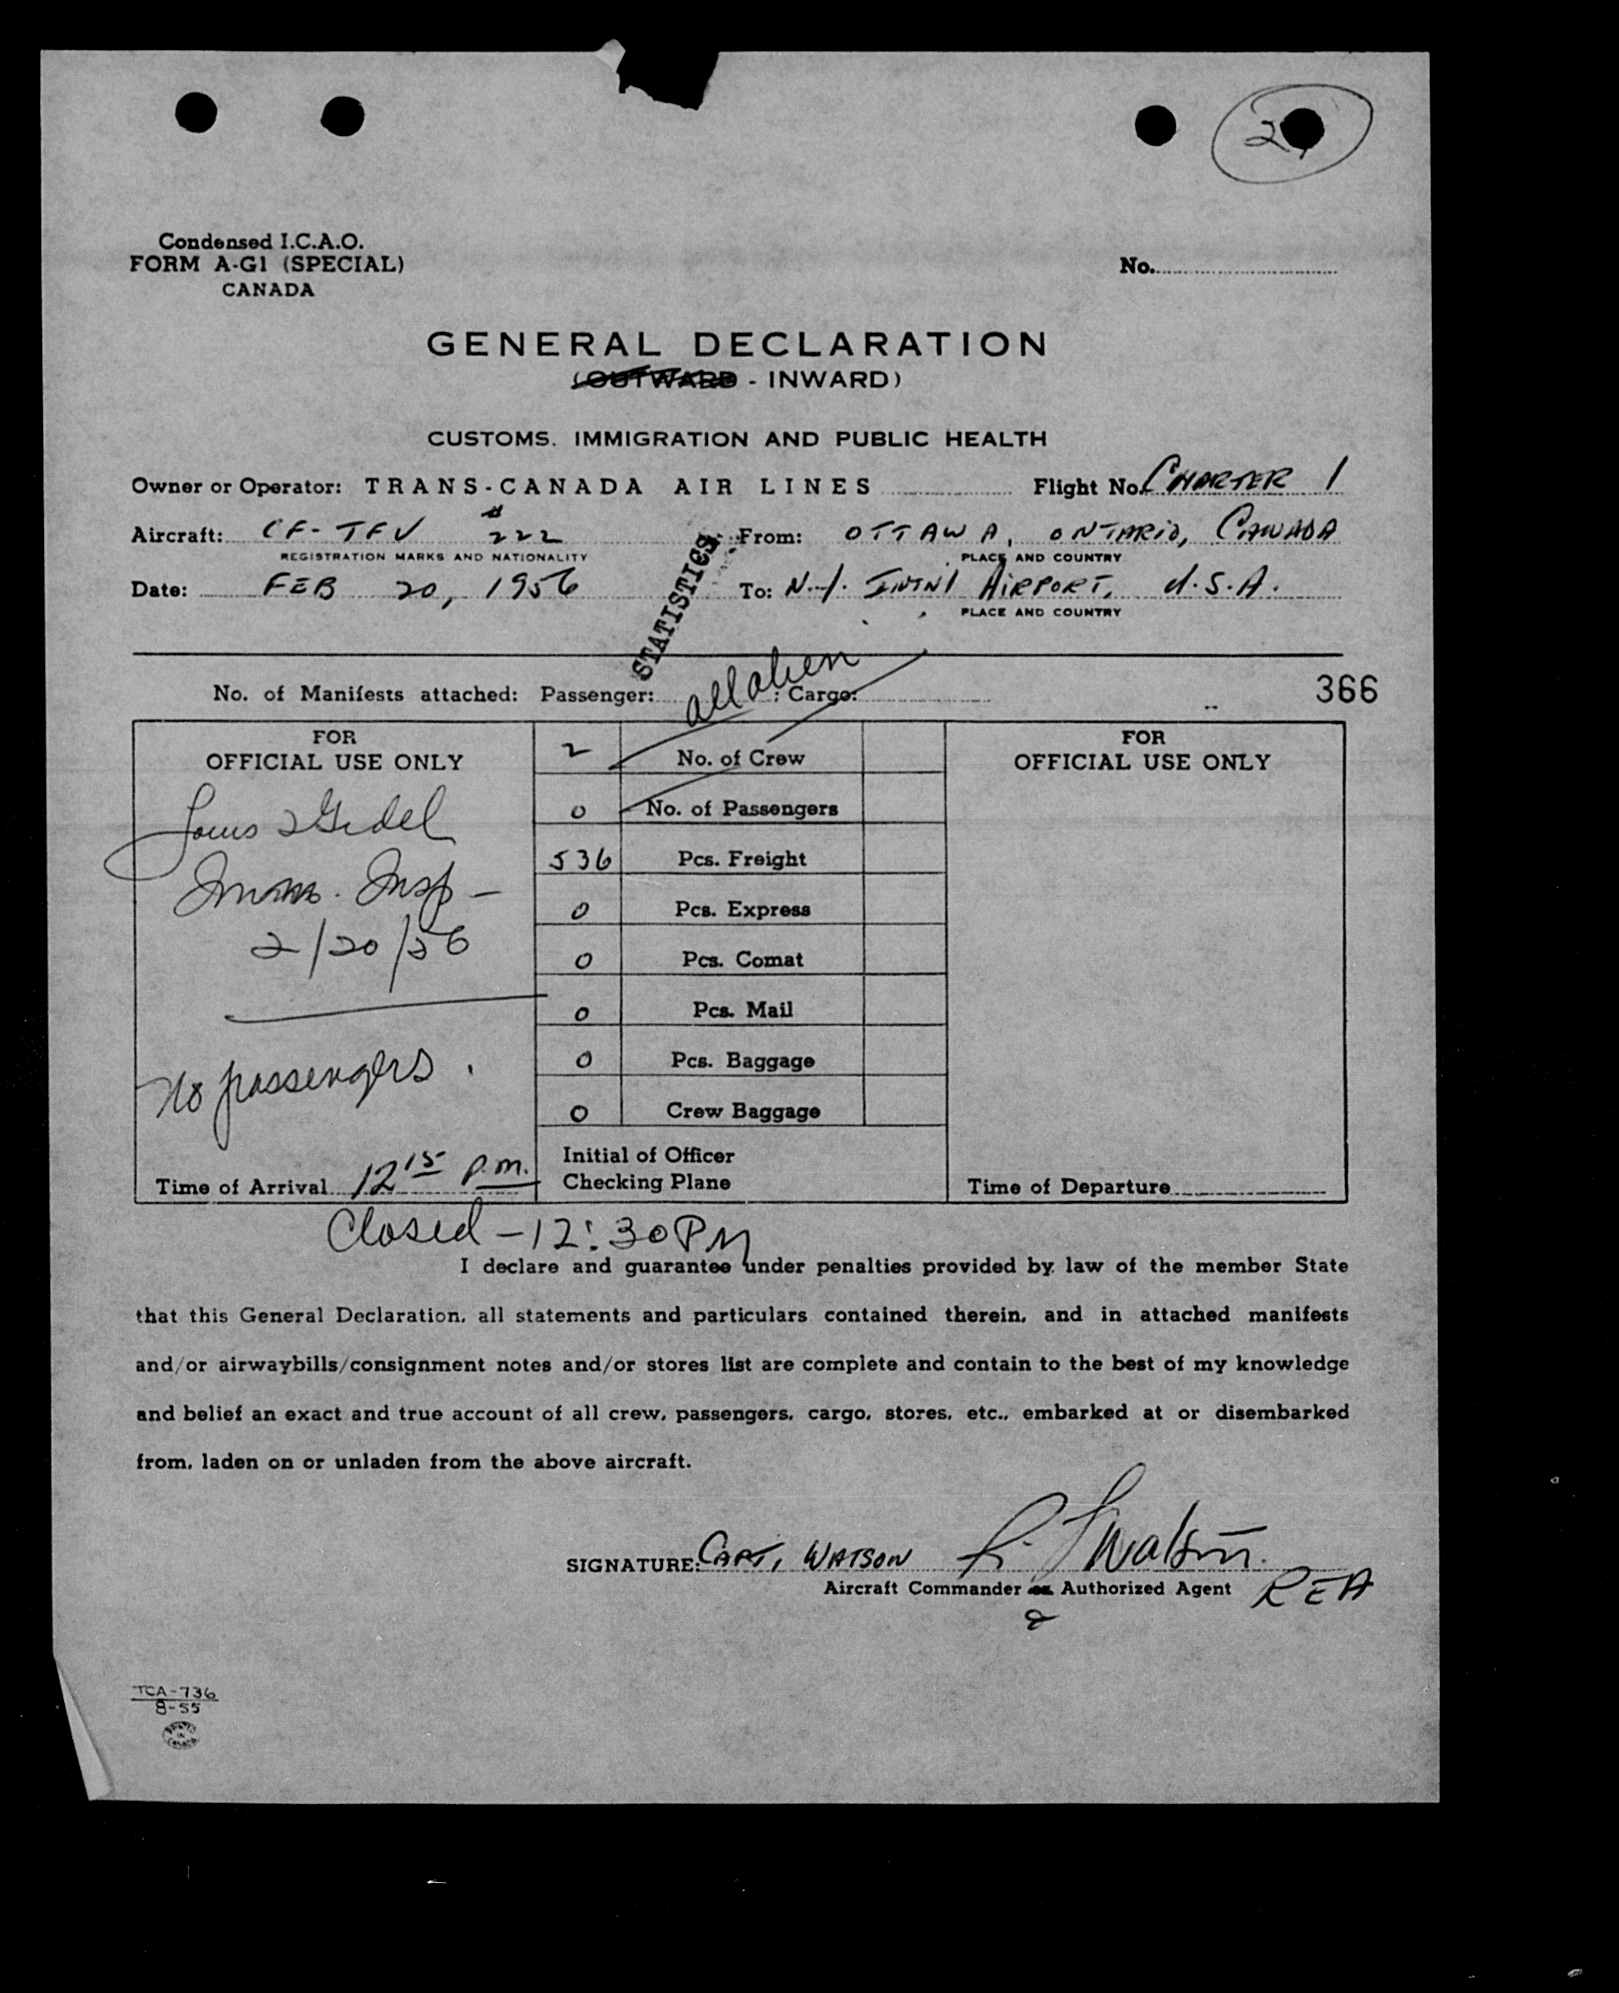 Condensed I.C.A.O.
FORM A-G1 (SPECIAL)
CANADA
No.
GENERAL DECLARATION
(OUTWARD - INWARD)
CUSTOMS, IMMIGRATION AND PUBLIC HEALTH
Owner or Operator: TRANS-CANADA AIR LINES Flight No. CHARTER 1
Aircraft: CF-TFV #222 From: OTTAWA, ONTARIO, CANADA
REGISTRATION MARKS AND NATIONALITY PLACE AND COUNTRY
Date: FEB 20, 1956 To: N.Y. INTNL AIRPORT, U.S.A.
PLACE AND COUNTRY
STATISTICS
all alien
No. of Manifests attached: Passenger: ; Cargo: 366
FOR
OFFICIAL USE ONLY
Louis
Imm. Insp -
2/20/56
No passengers.
Time of Arrival 12 15 P.M.
2 No. of Crew
0 No. of Passengers
536 Pcs. Freight
0 Pcs. Express
0 Pcs. Comat
0 Pcs. Mail
0 Pcs. Baggage
0 Crew Baggage
Initial of Officer
Checking Plane
FOR
OFFICIAL USE ONLY
Time of Departure
Closed - 12:30 PM
I declare and guarantee under penalties provided by law of the member State
that this General Declaration, all statements and particulars contained therein, and in attached manifests
and/or airwaybills/consignment notes and/or stores list are complete and contain to the best of my knowledge
and belief an exact and true account of all crew, passengers, cargo, stores, etc., embarked at or disembarked
from, laden on or unladen from the above aircraft.
SIGNATURE: CAPT. WATSON Watson
Aircraft Commander or Authorized Agent REA
&
TCA-736
8-55
PRINTED
IN
CANADA